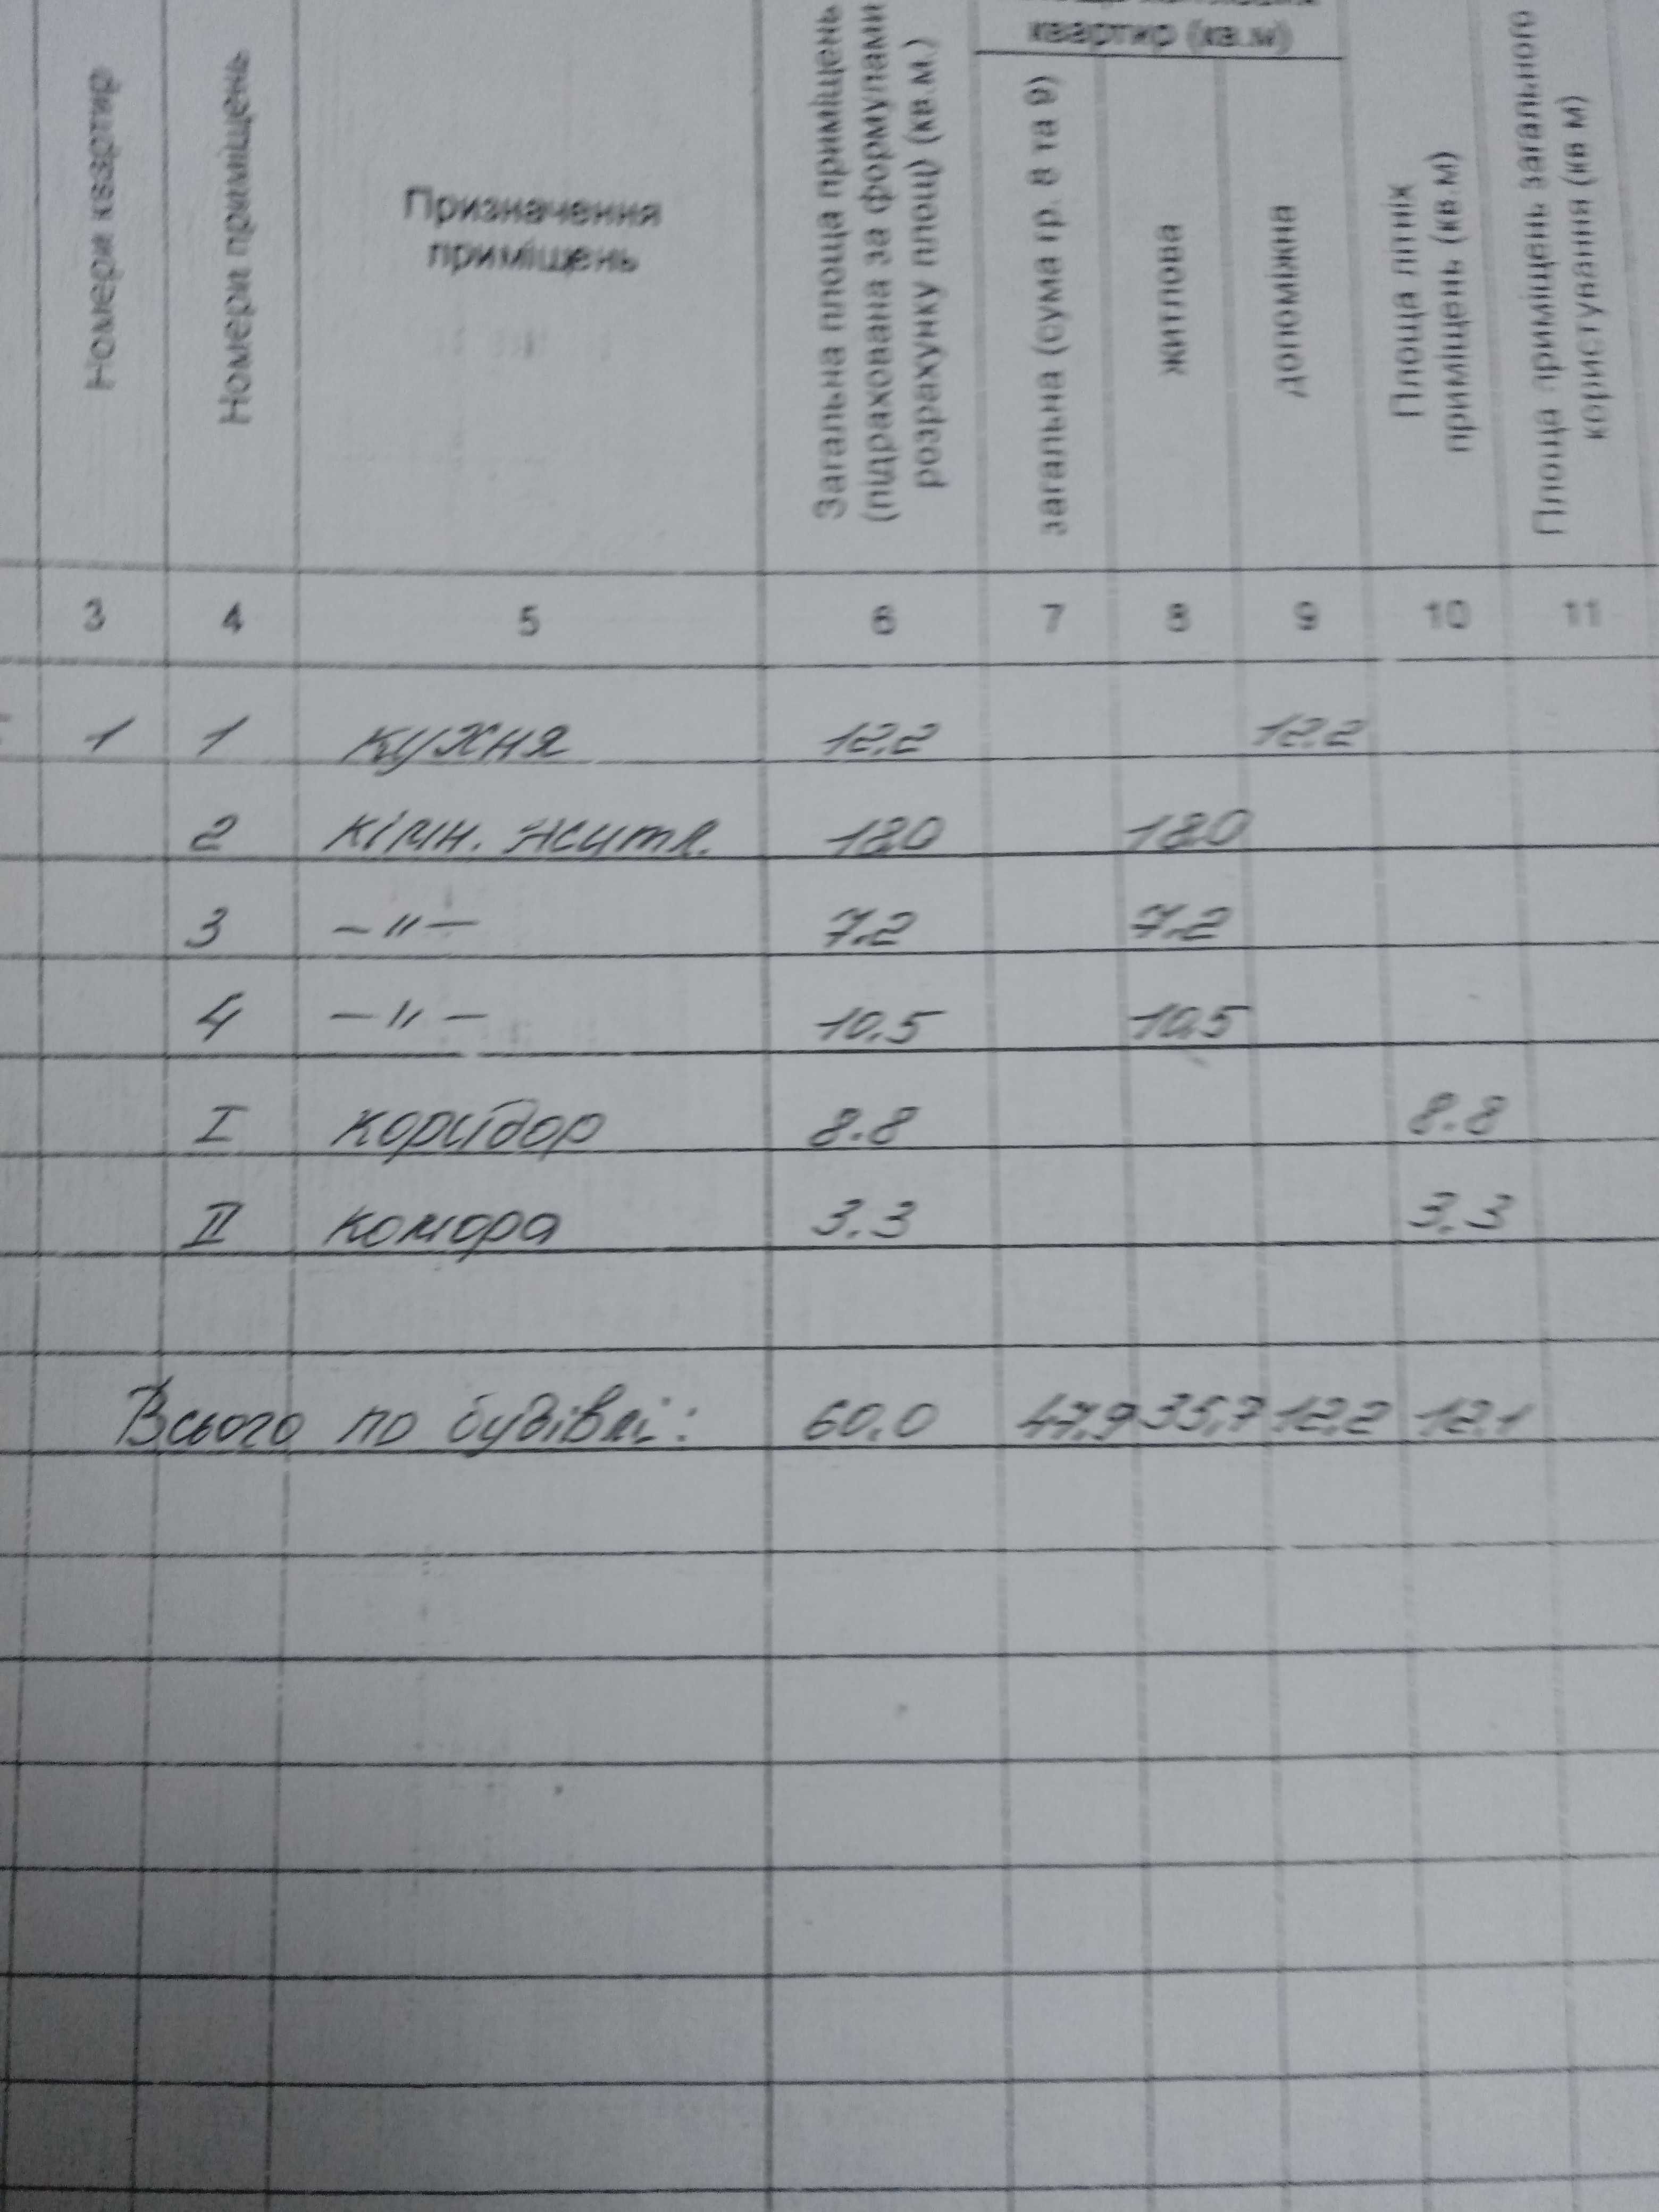 квартир (кв.м)
Номери квартир
Номери приміщень
Призначення
приміщень
Загальна площа приміщень
(підрахована за формулами
розрахунку площ) (кв.м.)
загальна (сума гр. 8 та 9)
житлова
допоміжна
Площа літніх
приміщень (кв.м)
Площа приміщень загального
користування (кв м)
3 4 5 6 7 8 9 10 11
1 1 кухня 12.2 12.2
2 кімн. житл. 18.0 18.0
3 –〃– 7.2 7.2
4 –〃– 10.5 10.5
I коридор 8.8 8.8
II комора 3.3 3.3
Всього по будівлі: 60.0 47,9 35,7 12.2 12.1